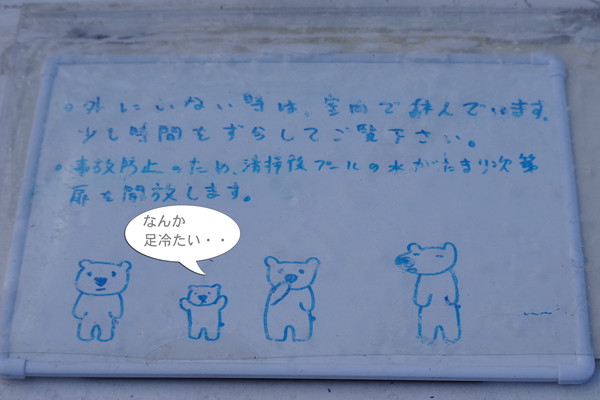 ○外にいない時は、室内で休んでいます。
少し時間をずらしてご覧下さい。
○事故防止のため、清掃後プールの水がたまり次第
扉を開放します。
なんか
足冷たい・・